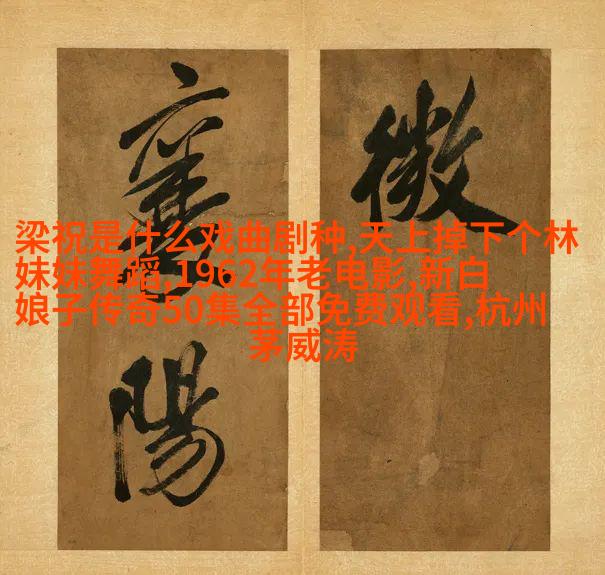 微
襄陽
梁祝是什么戏曲剧种,天上掉下个林
妹妹舞蹈,1962年老电影,新白
娘子传奇50集全部免费观看,杭州
茅威涛